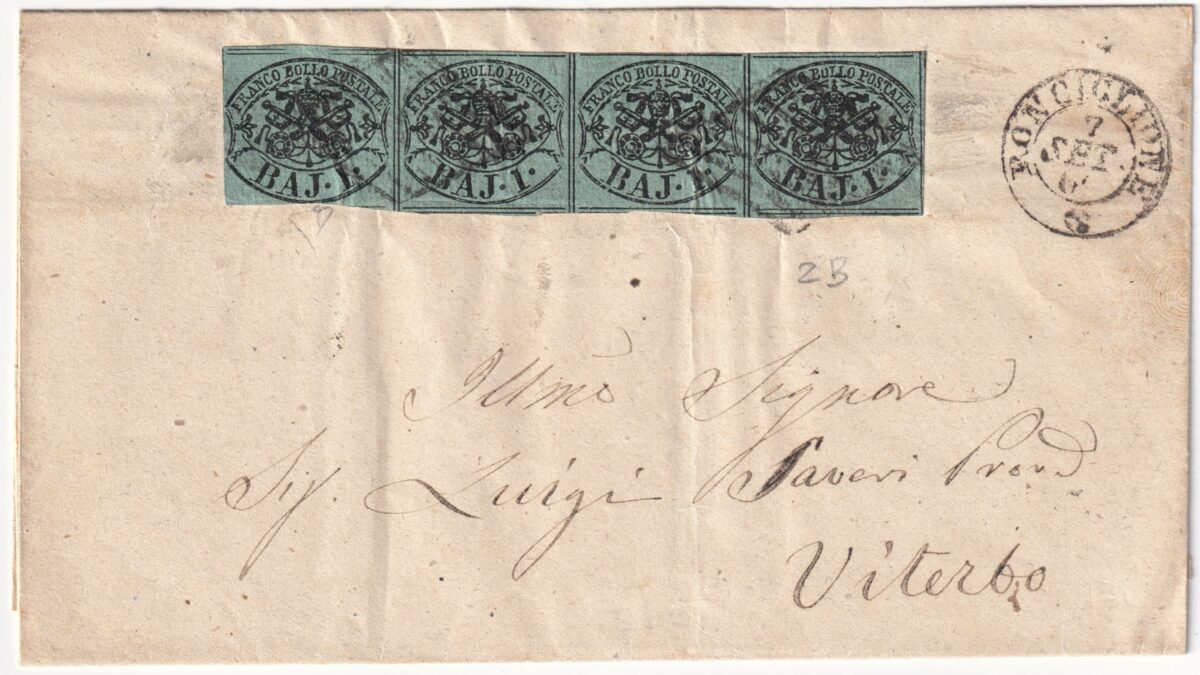 FRANCO BOLLO POSTALE FRANCO BOLLO POSTALE FRANCO BOLLO POSTALE FRANCO BOLLO POSTALE
BAJ. 1. BAJ. 1. BAJ. 1. BAJ. 1.
RONCIGLIONE
7
SET
6
2B
Illmo Signore
Sig. Luigi Saveri Prond
Viterbo